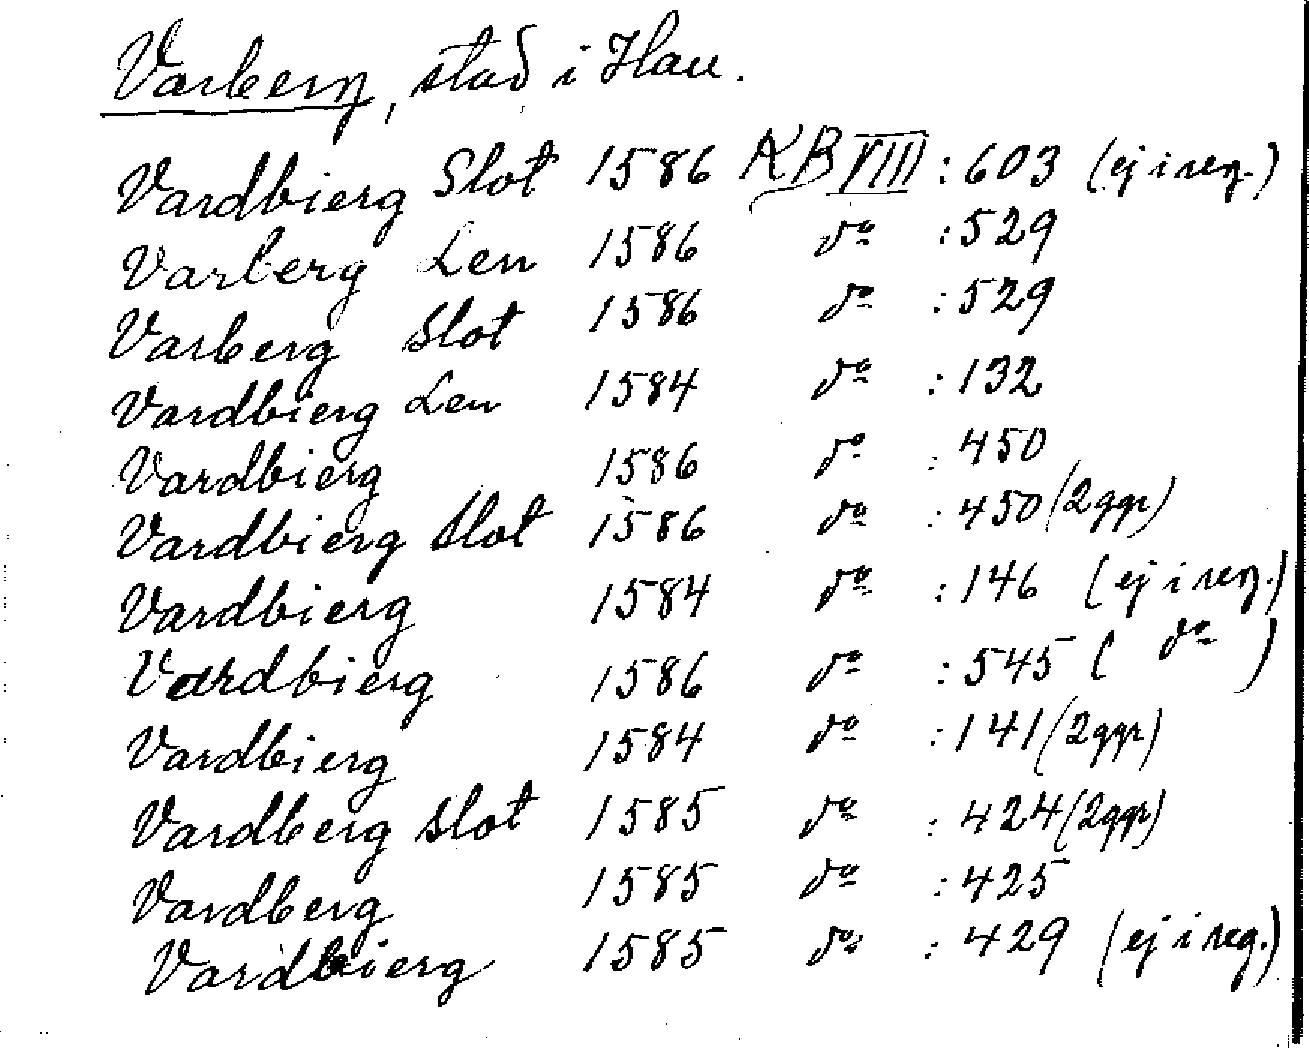 Varberg, stad i Hall.
Vardbierg Slot 1586 KB VIII : 603 (ej i reg.)
Varberg Len 1586 do : 529
Varberg Slot 1586 do : 529
Vardbierg Len 1584 do : 132
Vardbierg 1586 do : 450
Vardbierg Slot 1586 do : 450 (2ggr)
Vardbierg 1584 do : 146 (ej i reg.)
Vardbierg 1586 do : 545 ( do )
Vardbierg 1584 do : 141 (2ggr)
Vardberg slot 1585 do : 424 (2ggr)
Vardberg 1585 do : 425
Vardbierg 1585 do : 429 (ej i reg.)